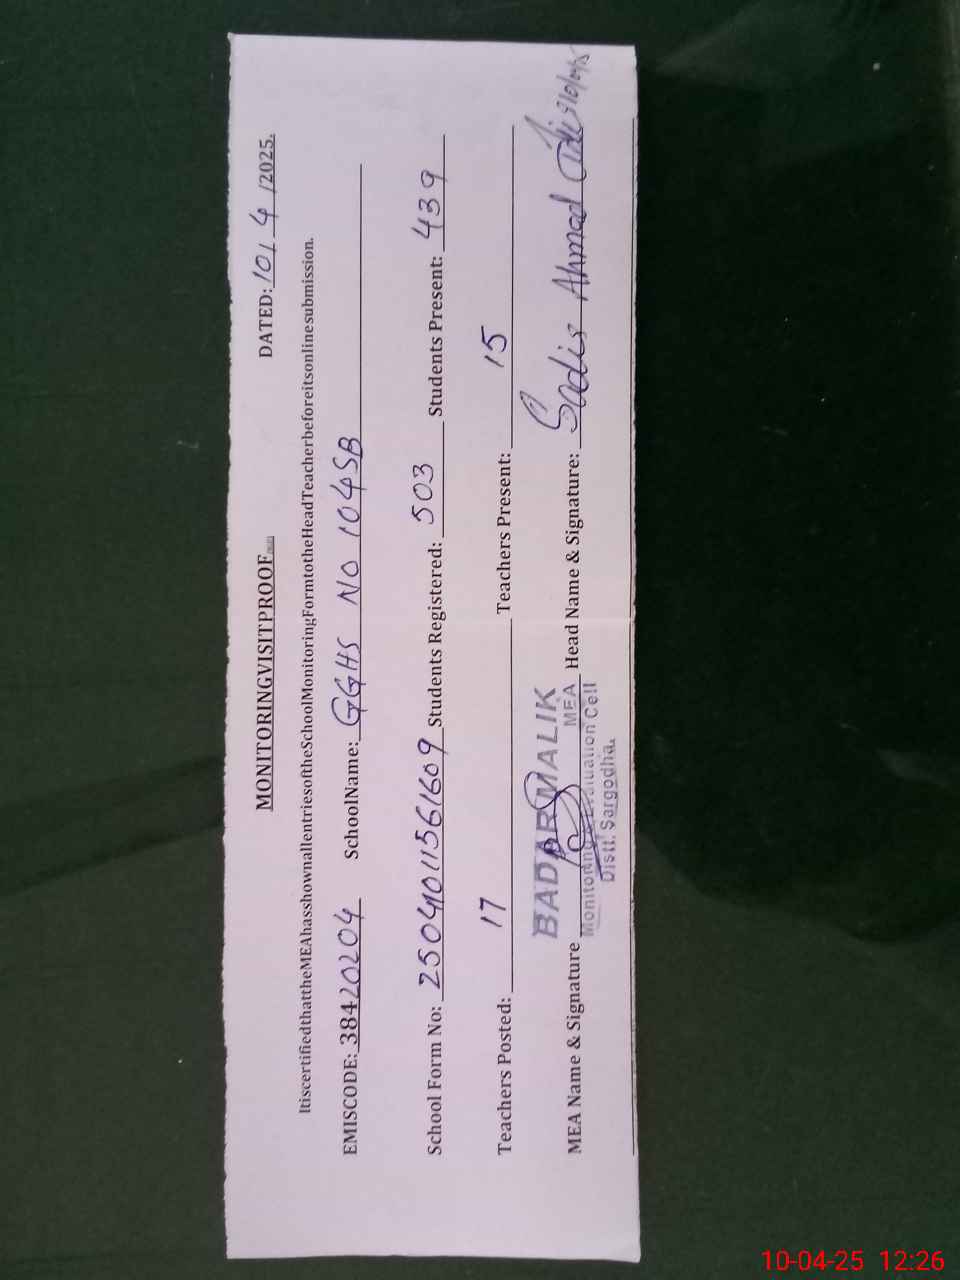 MONITORINGVISITPROOF
DATED: 10/ 4 /2025.
ItiscertifiedthattheMEAhasshownallentriesoftheSchoolMonitoringFormtotheHeadTeacherbeforeitsonlinesubmission.
EMISCODE: 38420204 SchoolName: GGHS NO 104SB
School Form No: 2504101156 1609 Students Registered: 503 Students Present: 439
Teachers Posted: 17 Teachers Present: 15
BADAR MALIK
MEA
MEA Name & Signature Head Name & Signature: Ahmad
Monitoring & Evaluation Cell
Distt. Sargodha.
10-04-25 12:26